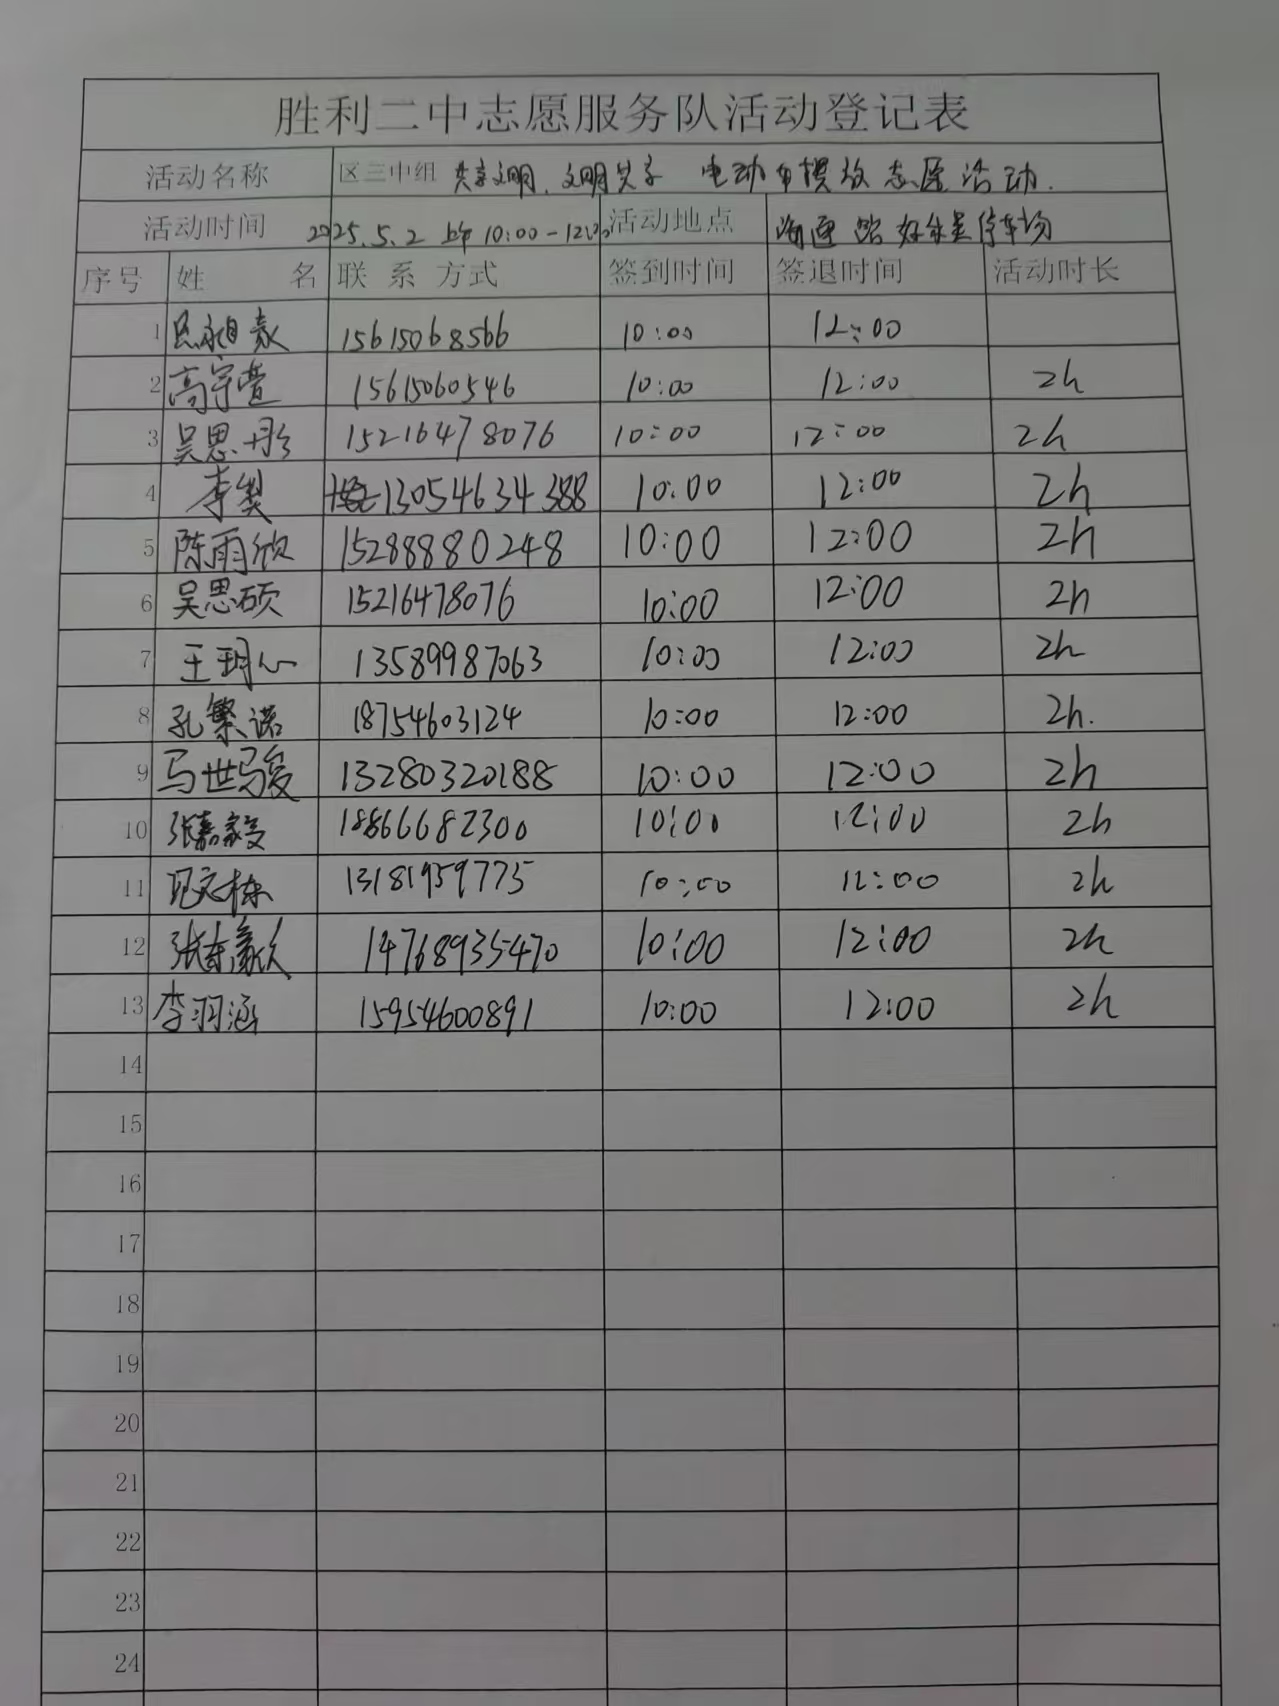 胜利二中志愿服务队活动登记表
活动名称 区三中组 共享文明、文明共享 电动车摆放志愿活动.
活动时间 2025.5.2 上午 10:00-12:00 活动地点 海通路 好乐星停车场
序号 姓 名 联 系 方式 签到时间 签退时间 活动时长
1 15615068566 10:00 12:00
2 高宇萱 15615060546 10:00 12:00 2h
3 吴思彤 15216478076 10:00 12:00 2h
4 李 13054634388 10:00 12:00 2h
5 陈雨欣 15288880248 10:00 12:00 2h
6 吴思硕 15216478076 10:00 12:00 2h
7 王玥心 13589987063 10:00 12:00 2h
8 孔繁诺 18754603124 10:00 12:00 2h.
9 马世骏 13280320188 10:00 12:00 2h
10 张嘉 18866682300 10:00 12:00 2h
11 文栋 13181959775 10:00 12:00 2h
12 张 14768935470 10:00 12:00 2h
13 李羽涵 15954600891 10:00 12:00 2h
14
15
16
17
18
19
20
21
22
23
24